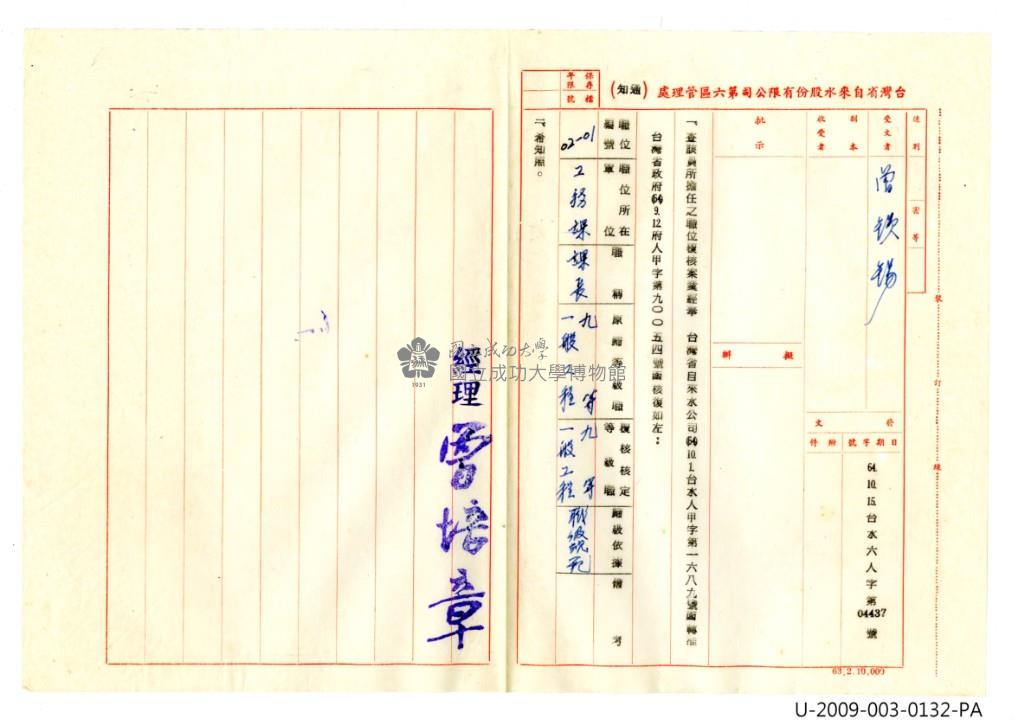 台灣省自來水股份有限公司第六區管理處(通知)
保存年限
檔號
速別
密等
受文者
曾鐵錫
副本收受者
批示
擬辦
發文
日期
字號
附件
64.10.15.台水六人字第04437號
一、查該員所擔任之職位複核案業經奉 台灣省自來水公司64.10.1.台水人甲字第一六八九號函轉准
台灣省政府64.9.12府人甲字第九〇〇五四號函核復如左：
職位編號
職位所在單位
職稱
原歸等級職
複核核定等級職
歸級依據
備考
02-01
工務課
課長
九等
一般工程
九等
一般工程
二、希知照。
經理 雷培章
裝
訂
線
63.2.10,000
1931
國立成功大學
國立成功大學博物館
U-2009-003-0132-PA